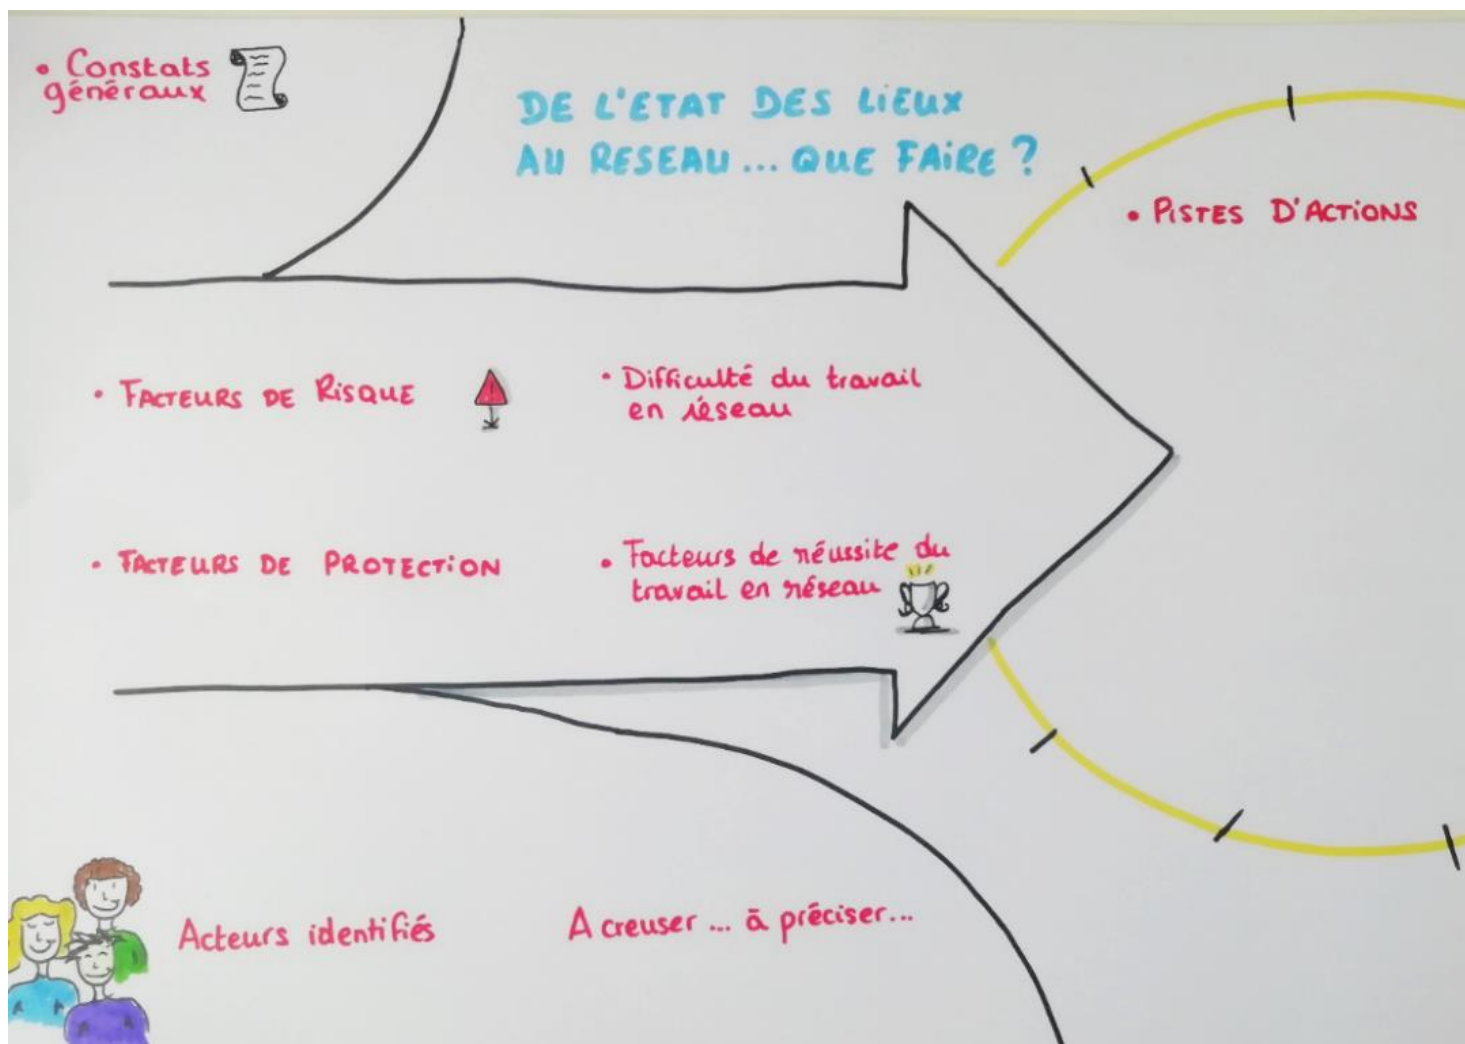 • Constats
généraux
DE L'ETAT DES LIEUX
AU RESEAU... QUE FAIRE ?
• PISTES D'ACTIONS
• FACTEURS DE RISQUE
• Difficulté du travail
en réseau
• FACTEURS DE PROTECTION
• Facteurs de réussite du
travail en réseau
Acteurs identifiés
A creuser ... à préciser...